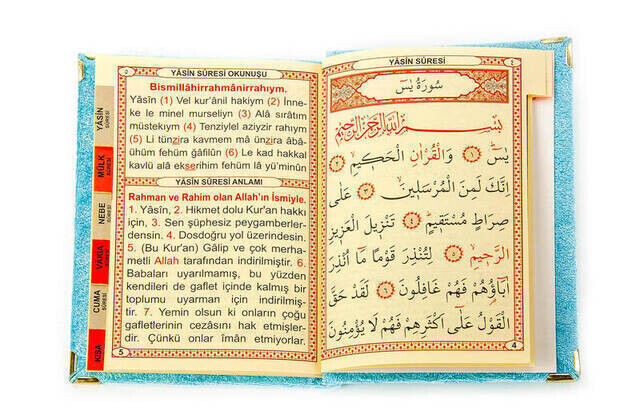 YÂSİN
SÛRESİ
MÜLK
SÛRESİ
NEBE
SÛRESİ
VAKIA
SÛRESİ
CUMA
SÛRESİ
KISA
٥
YÂSİN SÛRESİ OKUNUŞU
Bismillâhirrahmânirrahıym.
Yâsîn (1) Vel kur'ânil hakiym (2) İnne-
ke le minel murseliyn (3) Alâ sırâtım
müstekıym (4) Tenziylel aziyzir rahıym
(5) Li tünzira kavmem mâ ünzira âbâ-
ühüm fehüm ğâfilûn (6) Le kad hakkal
kavlü alâ ekserihim fehüm lâ yü'minûn
YÂSİN SÛRESİ ANLAMI
Rahman ve Rahim olan Allah'ın İsmiyle.
1. Yâsîn, 2. Hikmet dolu Kur'an hakkı
için, 3. Sen şüphesiz peygamberler-
densin. 4. Dosdoğru yol üzerindesin.
5. (Bu Kur'an) Gâlip ve çok merha-
metli Allah tarafından indirilmiştir. 6.
Babaları uyarılmamış, bu yüzden
kendileri de gaflet içinde kalmış bir
toplumu uyarman için indirilmiş-
tir. 7. Yemin olsun ki onların çoğu
gafletlerinin cezâsını hak etmişler-
dir. Çünkü onlar îmân etmiyorlar.
5
YÂSİN SÛRESİ
٤
سُورَةُ يٰسٓ
بِسْمِ اللّٰهِ الرَّحْمٰنِ الرَّحِيمِ
يٰسٓ ١ وَالْقُرْاٰنِ الْحَكِيمِ ٢
اِنَّكَ لَمِنَ الْمُرْسَلِينَ ٣ عَلٰى
صِرَاطٍ مُسْتَقِيمٍ ٤ تَنْزِيلَ الْعَزِيزِ
الرَّحِيمِ ٥ لِتُنْذِرَ قَوْمًا مَٓا اُنْذِرَ
اٰبَٓاؤُهُمْ فَهُمْ غَافِلُونَ ٦ لَقَدْ حَقَّ
الْقَوْلُ عَلٰٓى اَكْثَرِهِمْ فَهُمْ لَا يُؤْمِنُونَ
4